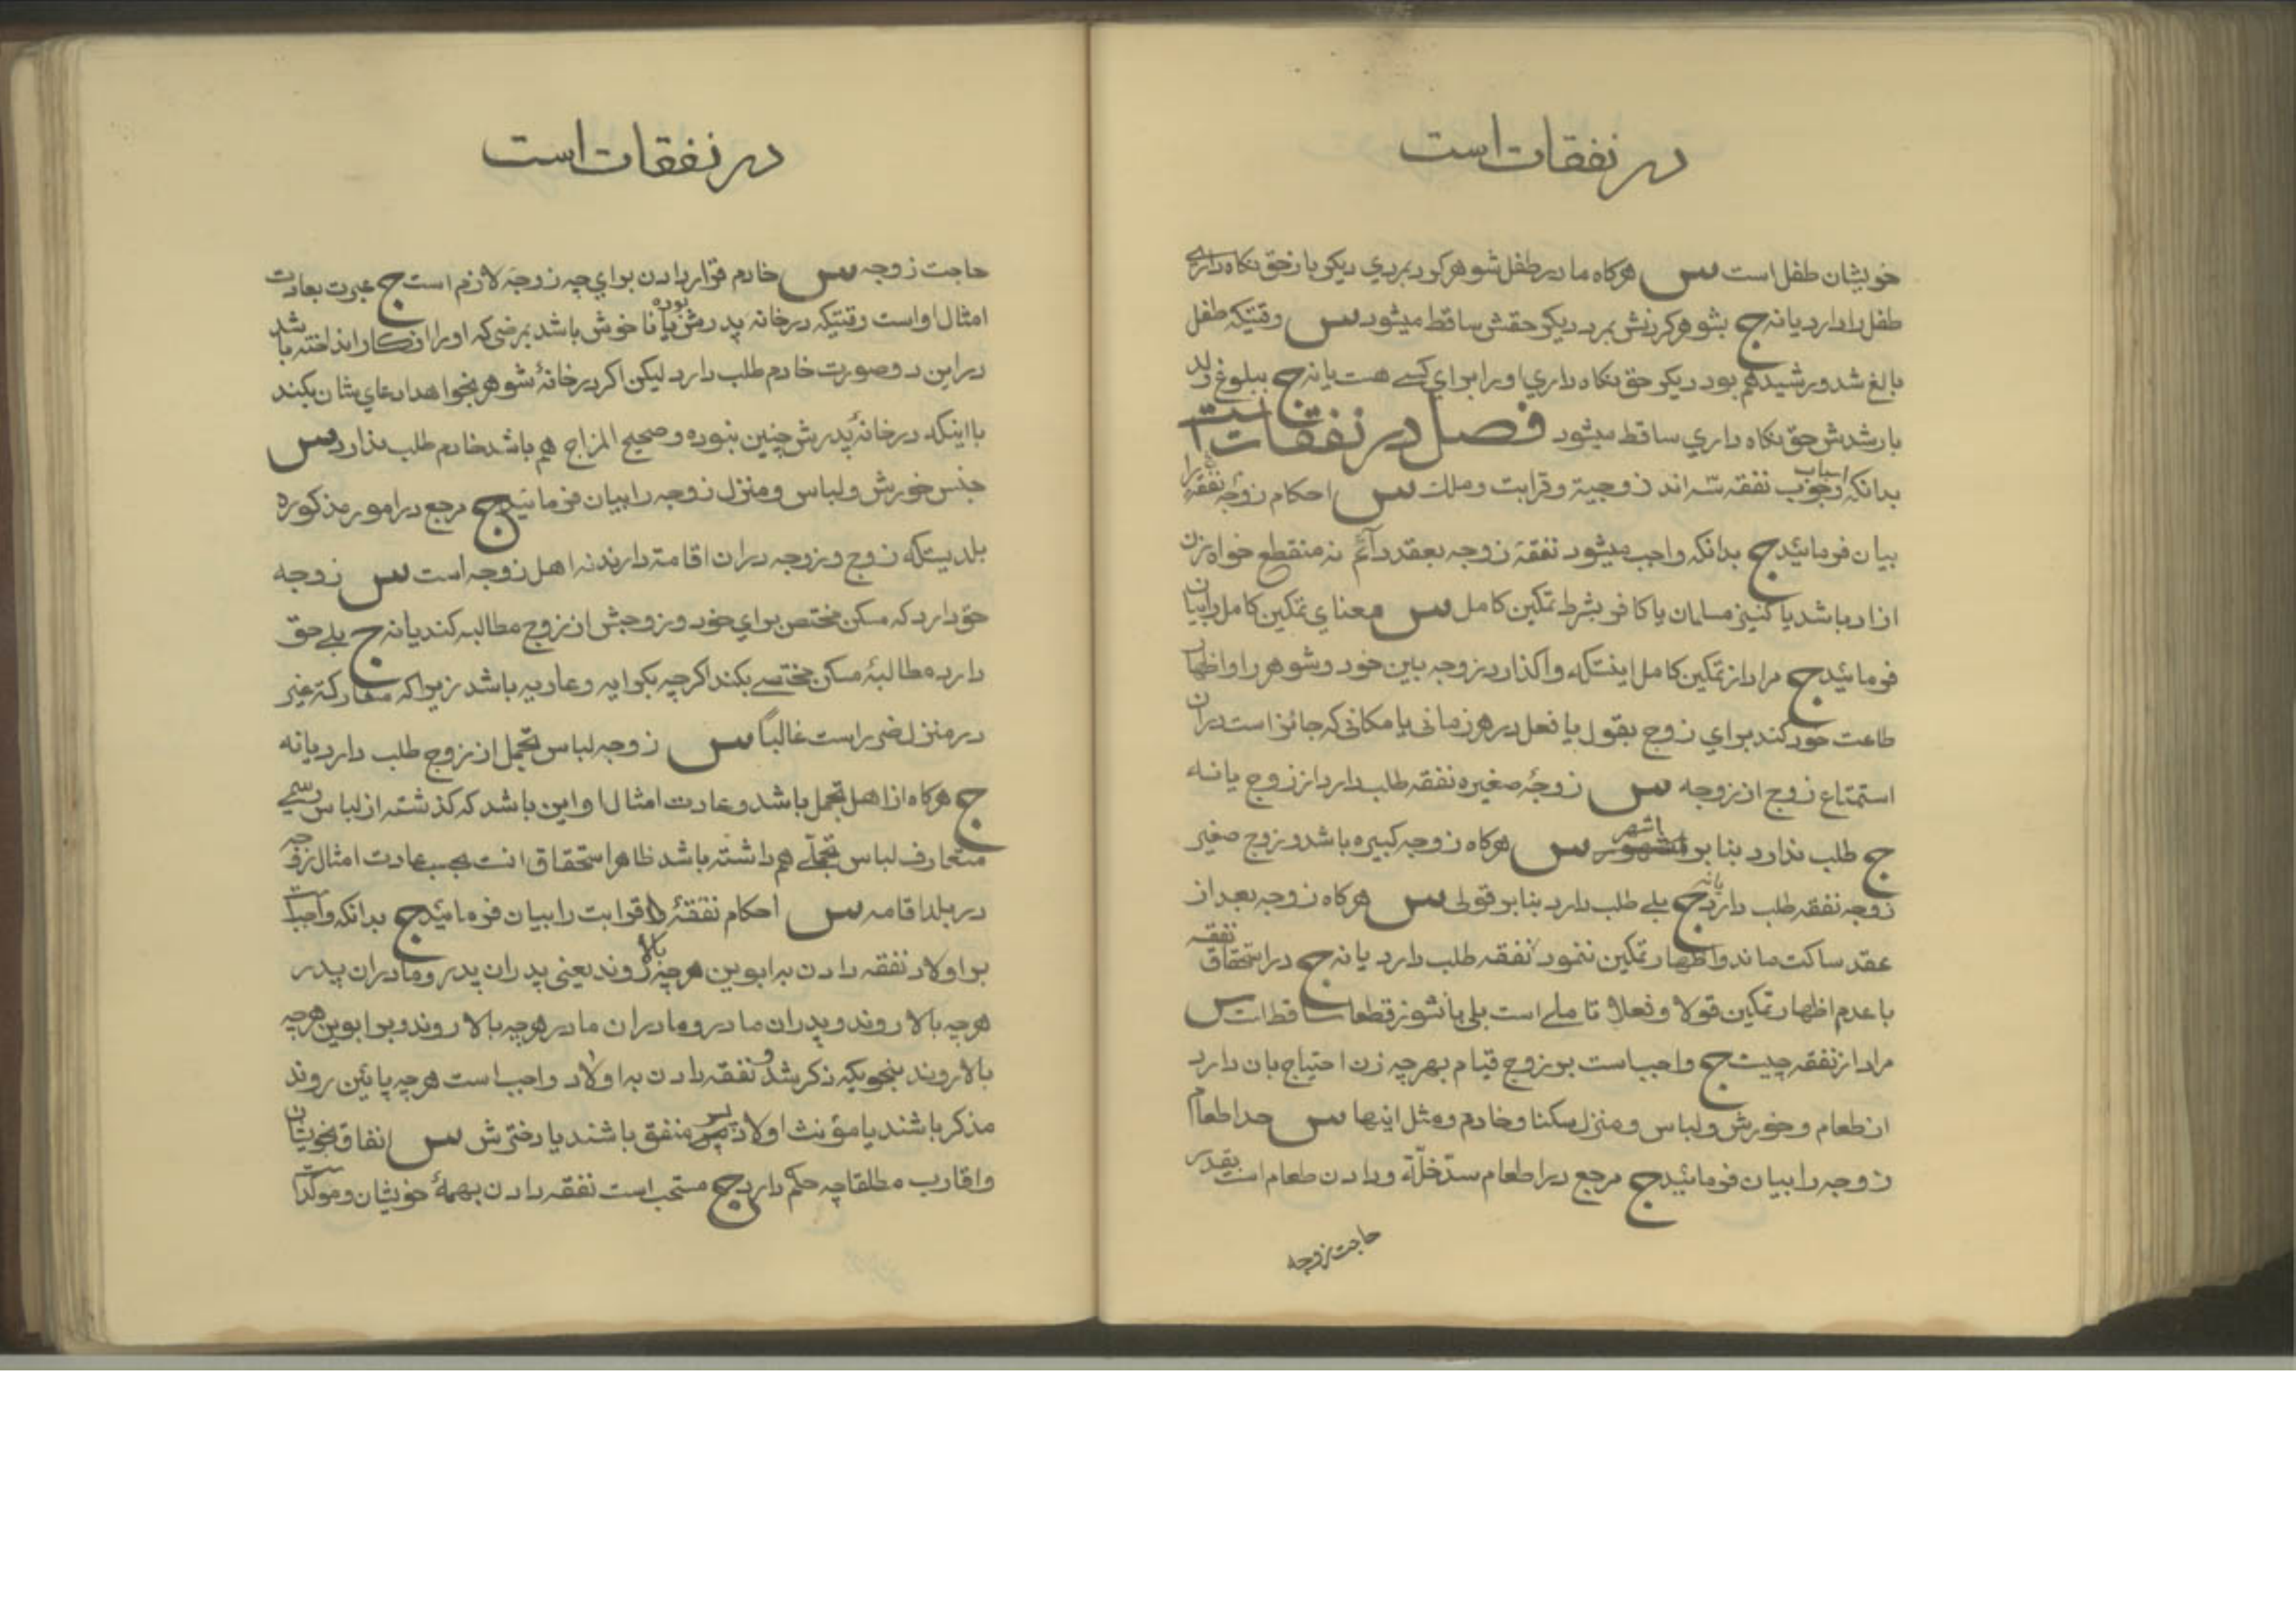 در نفقات است
خویشان طفل است س هرکاه مادر طفل شوهر کرد بمردی دیکر باز حق نکاه داری
طفل را دارد یا نه ج بشوهر کردنش بمرد دیکر حقش ساقط میشود س وقتیکه طفل
بالغ شد و رشید هم بود دیکر حق نکاه داری او را برای کسے هست یا نه ج ببلوغ ولد
بارشدش حق نکاه داری ساقط میشود فصل در نفقات است
بدانکه اسباب وجوب نفقه سه اند زوجیة و قرابت و ملک س احکام نفقۀ زوجه را
بیان فرمائید ج بدانکه واجب میشود نفقۀ زوجه بعقد دائم نه منقطع خواه زن
ازاد باشد یا کنیز مسلمان یا کافر بشرط تمکین کامل س معنای تمکین کامل را بیان
فرمائید ج مراد از تمکین کامل اینستکه واکذارد زوجه بین خود و شوهر را و اظهار
طاعت خود کند برای زوج بقول یا فعل در هر زمانی یا مکانی که جائز است دران
استمتاع زوج از زوجه س زوجۀ صغیره نفقه طلب دارد از زوج یا نه
ج طلب ندارد بنابر اشهر س هرکاه زوجه کبیره باشد و زوج صغیر
زوجه نفقه طلب دارد یا نه ج بلے طلب دارد بنابر قولی س هرکاه زوجه بعد از
عقد ساکت ماند و اظهار تمکین ننمود نفقه طلب دارد یا نه ج در استحقاق نفقه
با عدم اظهار تمکین قولا و فعلا تاملے است بلی با نشوز قطعا ساقط است س
مراد از نفقه چیست ج واجب است بر زوج قیام بهرچه زن احتیاج بان دارد
از طعام و خورش و لباس و منزل سکنا و خادم و مثل اینها س حد اطعام
زوجه را بیان فرمائید ج مرجع در اطعام سدّ خلّة و دادن طعام است بقدر
حاجت زوجه
در نفقات است
حاجت زوجه س خادم قرار دادن برای چه زوجه لازم است ج عبرت بعادت
امثال او است وقتیکه در خانه پدرش بوده یا ناخوش باشد بمرضی که او را از کار انداخته باشد
در این دو صورت خادم طلب دارد لیکن اکر در خانۀ شوهر بخواهد ادعای شان بکند
با اینکه در خانۀ پدرش چنین نبوده و صحیح المزاج هم باشد خادم طلب ندارد س
جنس خورش و لباس و منزل زوجه را بیان فرمائید ج مرجع در امور مذکوره
بلدیستکه زوج و زوجه دران اقامة دارند نه اهل زوجه است س زوجه
حق دارد که مسکن مختص برای خود و زوجش از زوج مطالبه کند یا نه ج بلے حق
دارد مطالبۀ مسکن مختصے بکند اکرچه بکرایه و عاریه باشد زیرا که مشارکة غیر
در منزل ضرر است غالباً س زوجه لباس تجمل از زوج طلب دارد یا نه
ج هرکاه از اهل تجمل باشد و عادت امثال او این باشد که کذشته از لباس رسمے
متعارف لباس تجملے هم داشته باشد ظاهرا استحقاق انست بحسب عادت امثال زوجه
در بلد اقامه س احکام نفقۀ قرابت را بیان فرمائید ج بدانکه واجب است
بر اولاد نفقه دادن به ابوین هرچه بالا روند یعنی پدران پدر و مادران پدر
هرچه بالا روند و پدران مادر و مادران مادر هرچه بالا روند و بر ابوین هرچه
بالا روند بنحویکه ذکر شد و نفقه دادن به اولاد واجب است هرچه پائین روند
مذکر باشند یا مؤنث اولاد پسر منفق باشند یا دخترش س انفاق بخویشان
و اقارب مطلقا چه حکم دارد ج مستحب است نفقه دادن بهمۀ خویشان و موکد است